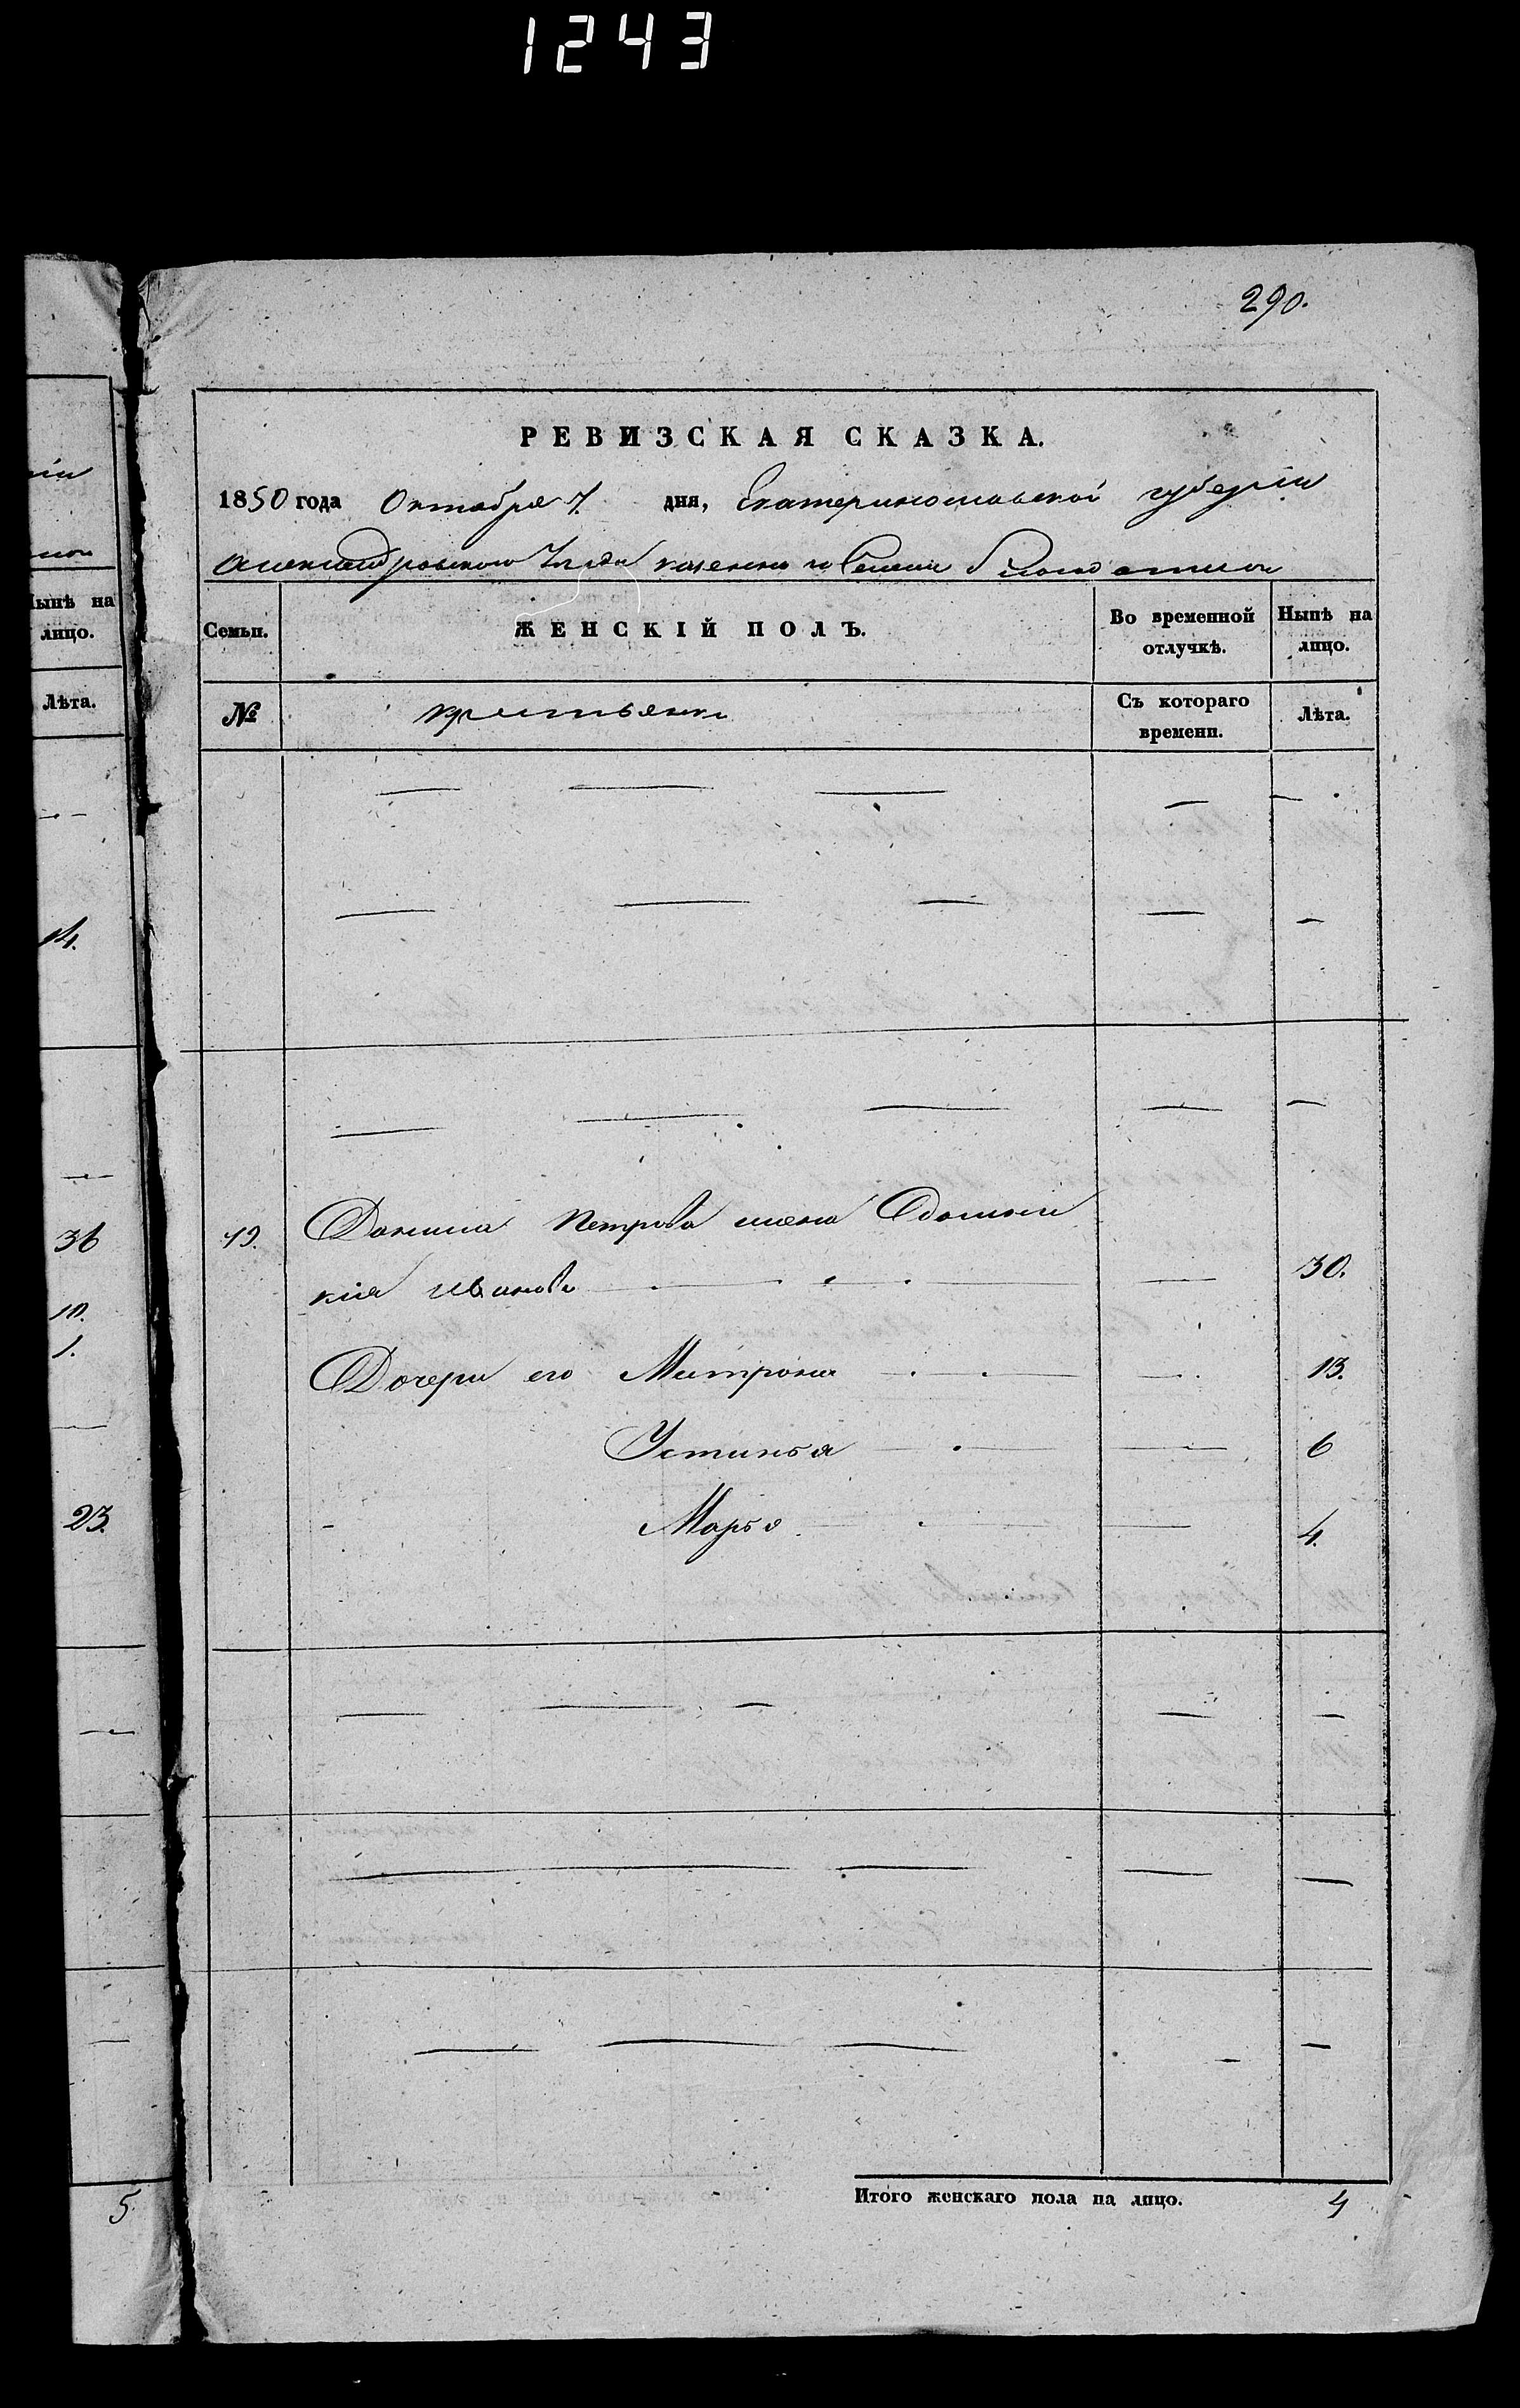 1243
290.
ніи
Нынѣ на
лицо.
Лѣта.
14.
36
10.
1.
23.
5
РЕВИЗСКАЯ СКАЗКА.
1850 года Октября 7. дня, Екатеринославской губерніи
Александровскаго Уезда казеннаго Селенія
Семьи. ЖЕНСКІЙ ПОЛЪ. Во временной отлучкѣ. Нынѣ на лицо.
№ крестьянки Съ котораго времени. Лѣта.
19. Данила Петрова жена Євдокіи
кія Иванова 30.
Дочери его Митрона 13.
Устинья 6
Марья 4.
Итого женскаго пола на лицо. 4